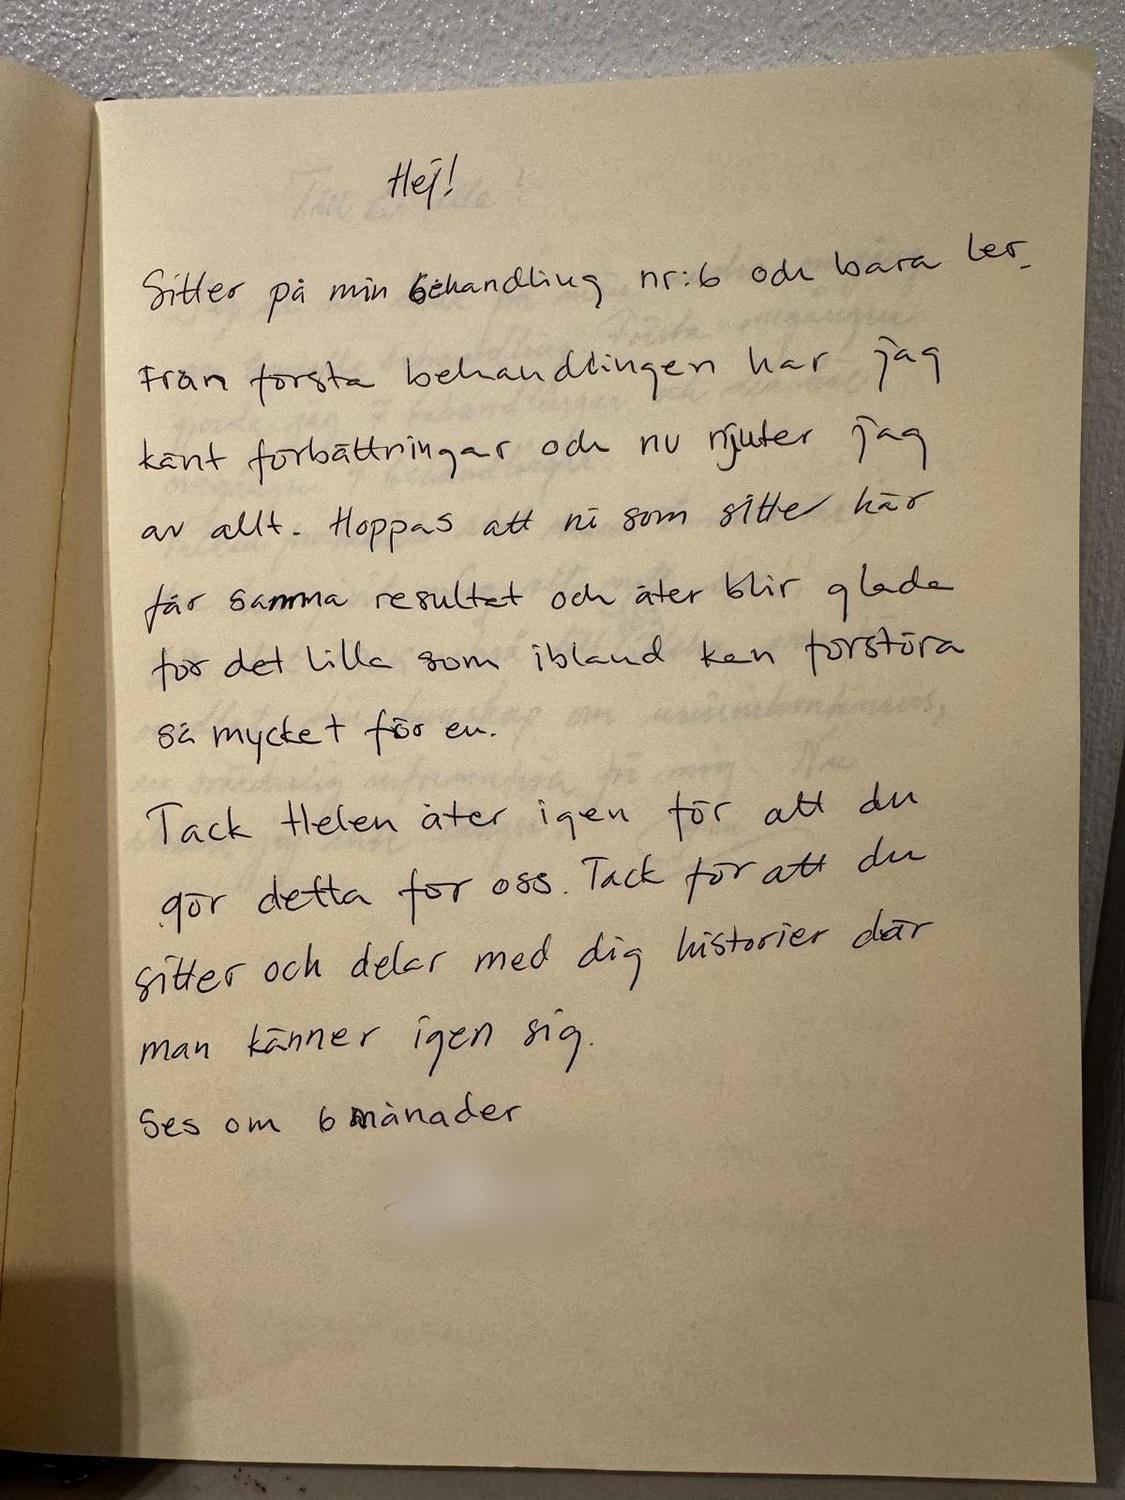 Hej!
Sitter på min behandling nr:6 och bara ler.
Från första behandlingen har jag
känt förbättringar och nu njuter jag
av allt. Hoppas att ni som sitter här
får samma resultat och åter blir glada
för det lilla som ibland kan förstöra
så mycket för en.
Tack Helen åter igen för att du
gör detta för oss. Tack för att du
sitter och delar med dig historier där
man känner igen sig.
Ses om 6 månader